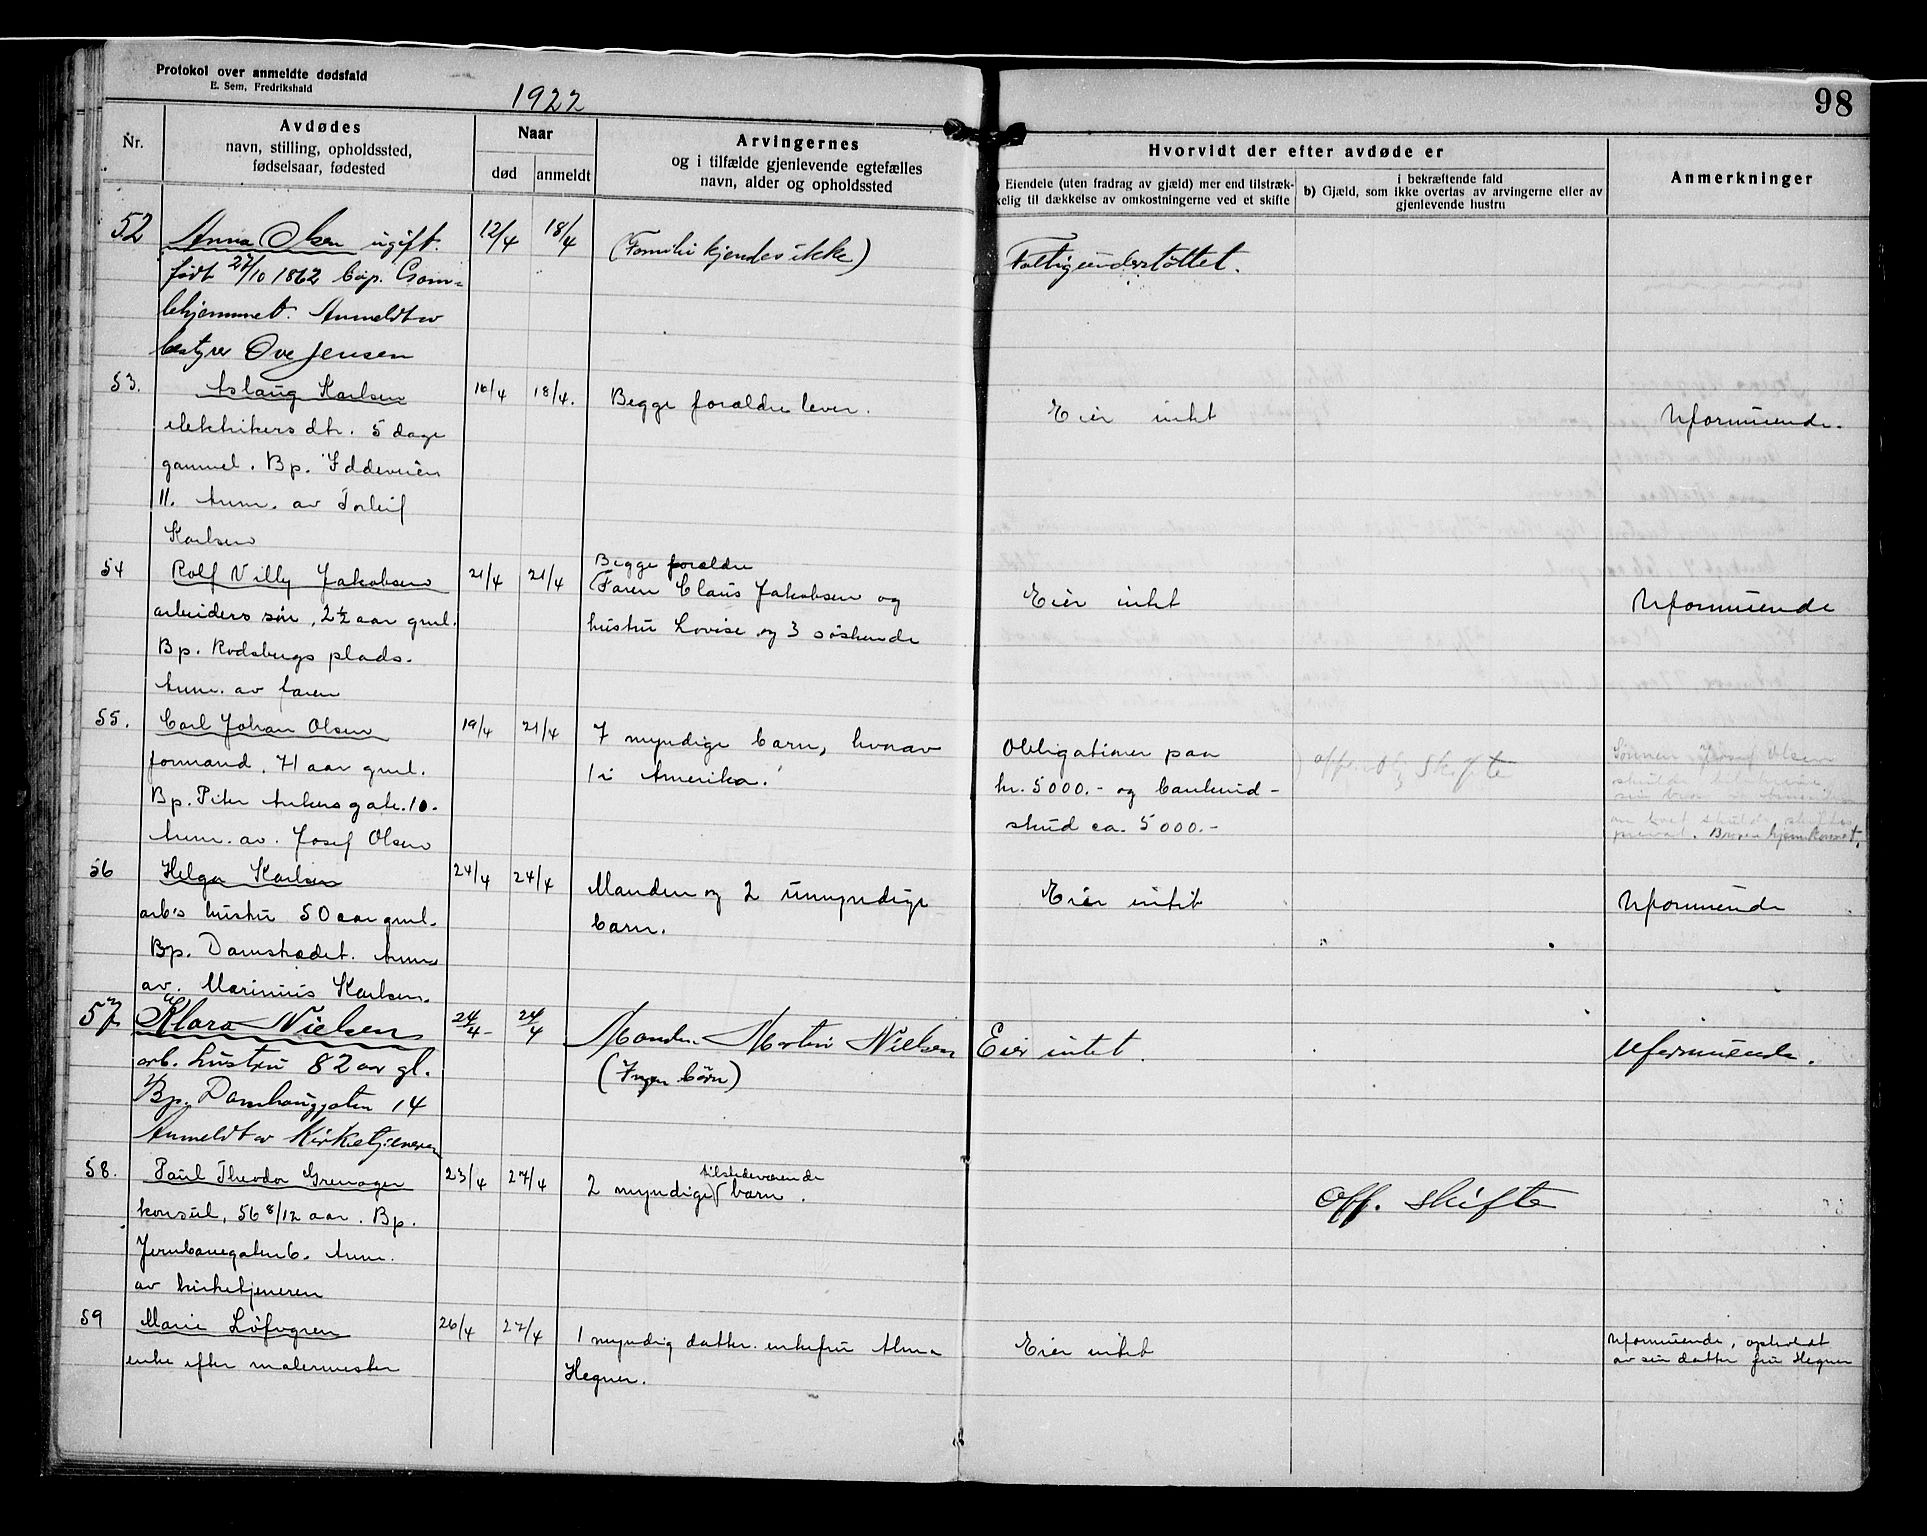 Protokol over anmeldte dødsfald
E. Sem, Fredrikshald
1922
98
Nr.
Avdødes
navn, stilling, opholdssted,
fødselsaar, fødested
Naar
død
anmeldt
Arvingernes
og i tilfælde gjenlevende egtefælles
navn, alder og opholdssted
Hvorvidt der efter avdøde er
Eiendele (uten fradrag av gjæld) mer end tilstræk-
kelig til dækkelse av omkostningerne ved et skifte
i bekræftende fald
b) Gjæld, som ikke overtas av arvingerne eller av
gjenlevende hustru
Anmerkninger
52
Anna Olsen ugift.
født 27/10 1862 Bop. Gam-
lehjemmet. Anmeldt av
bestyrer Ove Jensen
12/4
18/4
(Familie kjendes ikke)
Fattigunderstøttet.
53.
Aslaug Karlsen
elektrikers dtr. 5 dage
gammel. Bp. Iddeveien
11. Anm. av Torleif
Karlsen
16/4
18/4.
Begge forældre lever.
Eier intet
Uformuende.
54
Rolf Villy Jakobsen
arbeiders søn, 2½ aar gml.
Bp. Rødsbergs plads.
Anm. av faren
21/4
21/4
Begge forældre
(Faren Claus Jakobsen og
hustru Lovise og 3 søskende
Eier intet
Uformuende
55.
Carl Johan Olsen
formand, 71 aar gml.
Bp. Peter Ankers gate 10.
Anm. av. Josef Olsen
19/4
21/4
7 myndige barn, hvorav
1 i Amerika.
Obligationer paa
kr. 5000.- og bankind-
skud ca. 5000.-
off. Skifte
Sønnen Josef Olsen
skulde tilskrive
sin bror i Amerika
om boet skulde skiftes
privat. Brever hjemkommet.
56
Helga Karlsen
arb's hustru 50 aar gml.
Bp. Damstrædet. Anm.
av. Marinius Karlsen.
24/4
24/4
Manden og 2 umyndige
barn.
Eier intet
Uformuende
57
Klara Nielsen
arb. hustru 82 aar gl.
Bp. Damhauggaten 14
Anmeldt av Kirketjeneren
24/4
24/4
Manden Martin Nielsen
(Ingen børn)
Eier intet.
Uformuende.
58.
Paul Theodor Grenager
konsul, 56 8/12 aar. Bp.
Jernbanegaten 6. Anm.
av kirketjeneren
23/4
27/4
tilstedeværende
2 myndige barn.
Off. skifte
59
Marie Löfvgren
enke efter malermester
26/4
27/4
1 myndig datter. enkefru Alma
Hegner.
Eier intet
Uformuende, opholdt
av sin datter fru Hegner